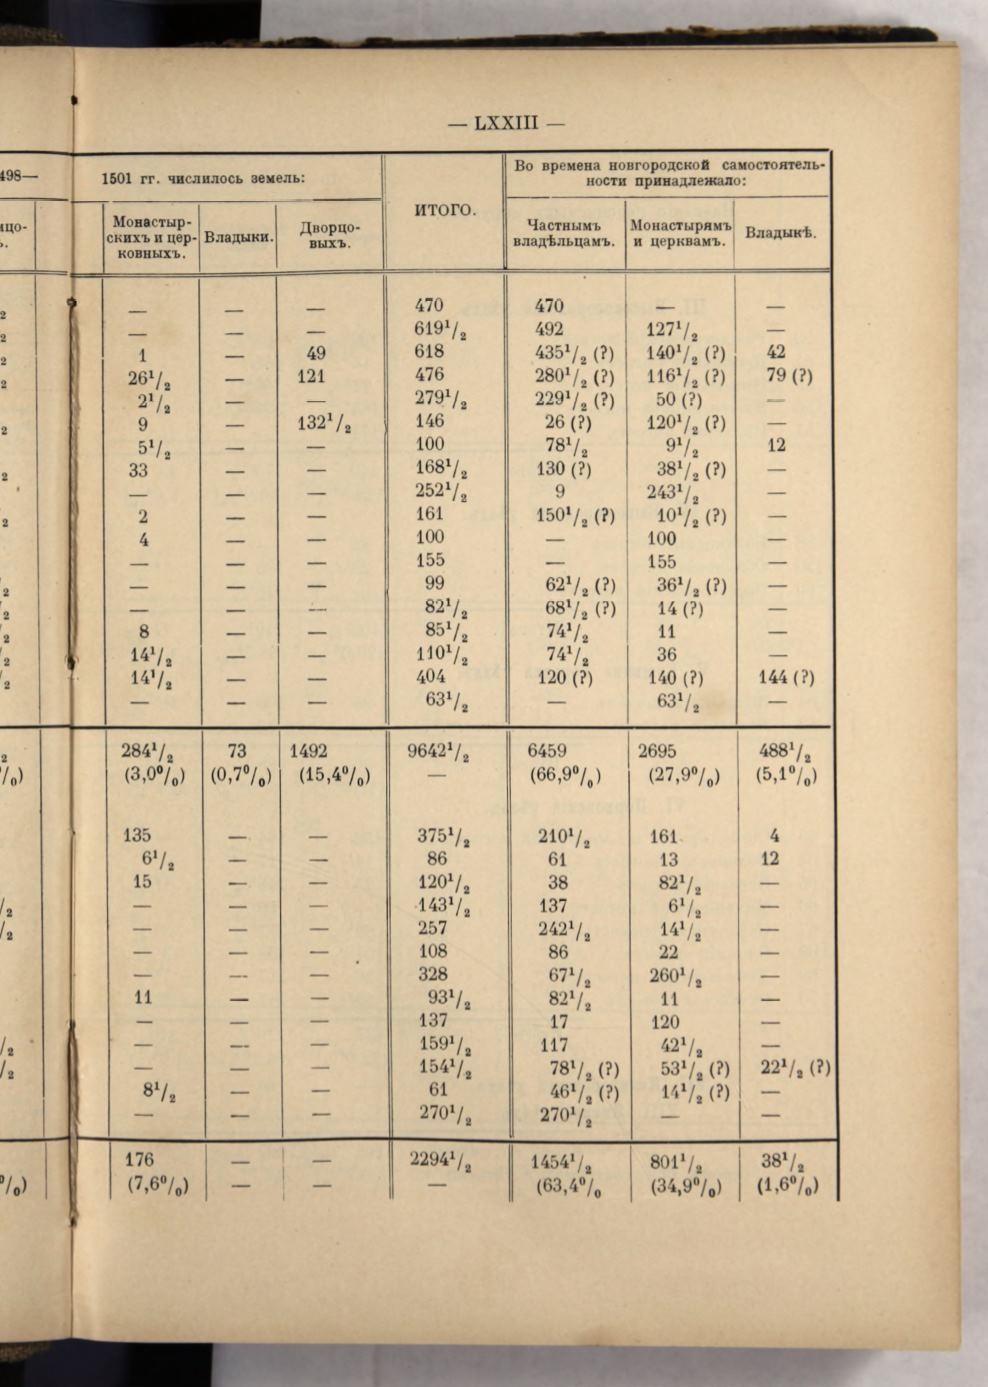 — LXXIII —
498— 1501 гг. числилось земель: ИТОГО. Во времена новгородской самостоятель-
ности принадлежало:
Монастыр-
скихъ и цер-
ковныхъ. Владыки. Дворцо-
выхъ. Частнымъ
владѣльцамъ. Монастырямъ
и церквамъ. Владыкѣ.
— — — 470 470 — —
— — — 619¹/₂ 492 127¹/₂ —
1 — 49 618 435¹/₂ (?) 140¹/₂ (?) 42
26¹/₂ — 121 476 280¹/₂ (?) 116¹/₂ (?) 79 (?)
2¹/₂ — — 279¹/₂ 229¹/₂ (?) 50 (?) —
9 — 132¹/₂ 146 26 (?) 120¹/₂ (?) —
5¹/₂ — — 100 78¹/₂ 9¹/₂ 12
33 — — 168¹/₂ 130 (?) 38¹/₂ (?) —
— — — 252¹/₂ 9 243¹/₂ —
2 — — 161 150¹/₂ (?) 10¹/₂ (?) —
4 — — 100 — 100 —
— — — 155 — 155 —
— — — 99 62¹/₂ (?) 36¹/₂ (?) —
— — — 82¹/₂ 68¹/₂ (?) 14 (?) —
8 — — 85¹/₂ 74¹/₂ 11 —
14¹/₂ — — 110¹/₂ 74¹/₂ 36 —
14¹/₂ — — 404 120 (?) 140 (?) 144 (?)
— — — 63¹/₂ — 63¹/₂ —
284¹/₂ 73 1492 9642¹/₂ 6459 2695 488¹/₂
(3,0⁰/₀) (0,7⁰/₀) (15,4⁰/₀) — (66,9⁰/₀) (27,9⁰/₀) (5,1⁰/₀)
135 — — 375¹/₂ 210¹/₂ 161 4
6¹/₂ — — 86 61 13 12
15 — — 120¹/₂ 38 82¹/₂ —
— — — 143¹/₂ 137 6¹/₂ —
— — — 257 242¹/₂ 14¹/₂ —
— — — 108 86 22 —
— — — 328 67¹/₂ 260¹/₂ —
11 — — 93¹/₂ 82¹/₂ 11 —
— — — 137 17 120 —
— — — 159¹/₂ 117 42¹/₂ —
— — — 154¹/₂ 78¹/₂ (?) 53¹/₂ (?) 22¹/₂ (?)
8¹/₂ — — 61 46¹/₂ (?) 14¹/₂ (?) —
— — — 270¹/₂ 270¹/₂ — —
176 — — 2294¹/₂ 1454¹/₂ 801¹/₂ 38¹/₂
(7,6⁰/₀) — — — (63,4⁰/₀ (34,9⁰/₀) (1,6⁰/₀)